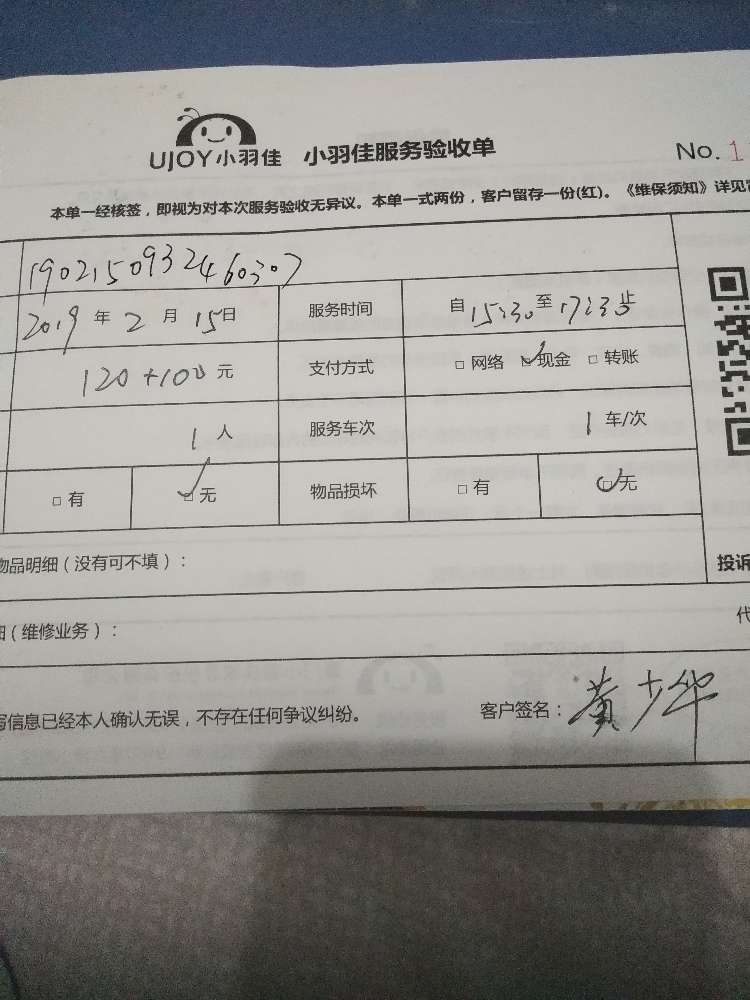 UJOY小羽佳 小羽佳服务验收单
No. 1
本单一经核签，即视为对本次服务验收无异议。本单一式两份，客户留存一份(红)。《维保须知》详见
1902150932460307
2019 年 2 月 15日 服务时间 自 15:30 至 17:30 止
120+100 元 支付方式 □ 网络 ☑ 现金 □ 转账
1 人 服务车次 1 车/次
□ 有 ☑ 无 物品损坏 □ 有 ☑ 无
物品明细（没有可不填）：
投诉
细（维修业务）：
代
写信息已经本人确认无误，不存在任何争议纠纷。 客户签名：黄少华